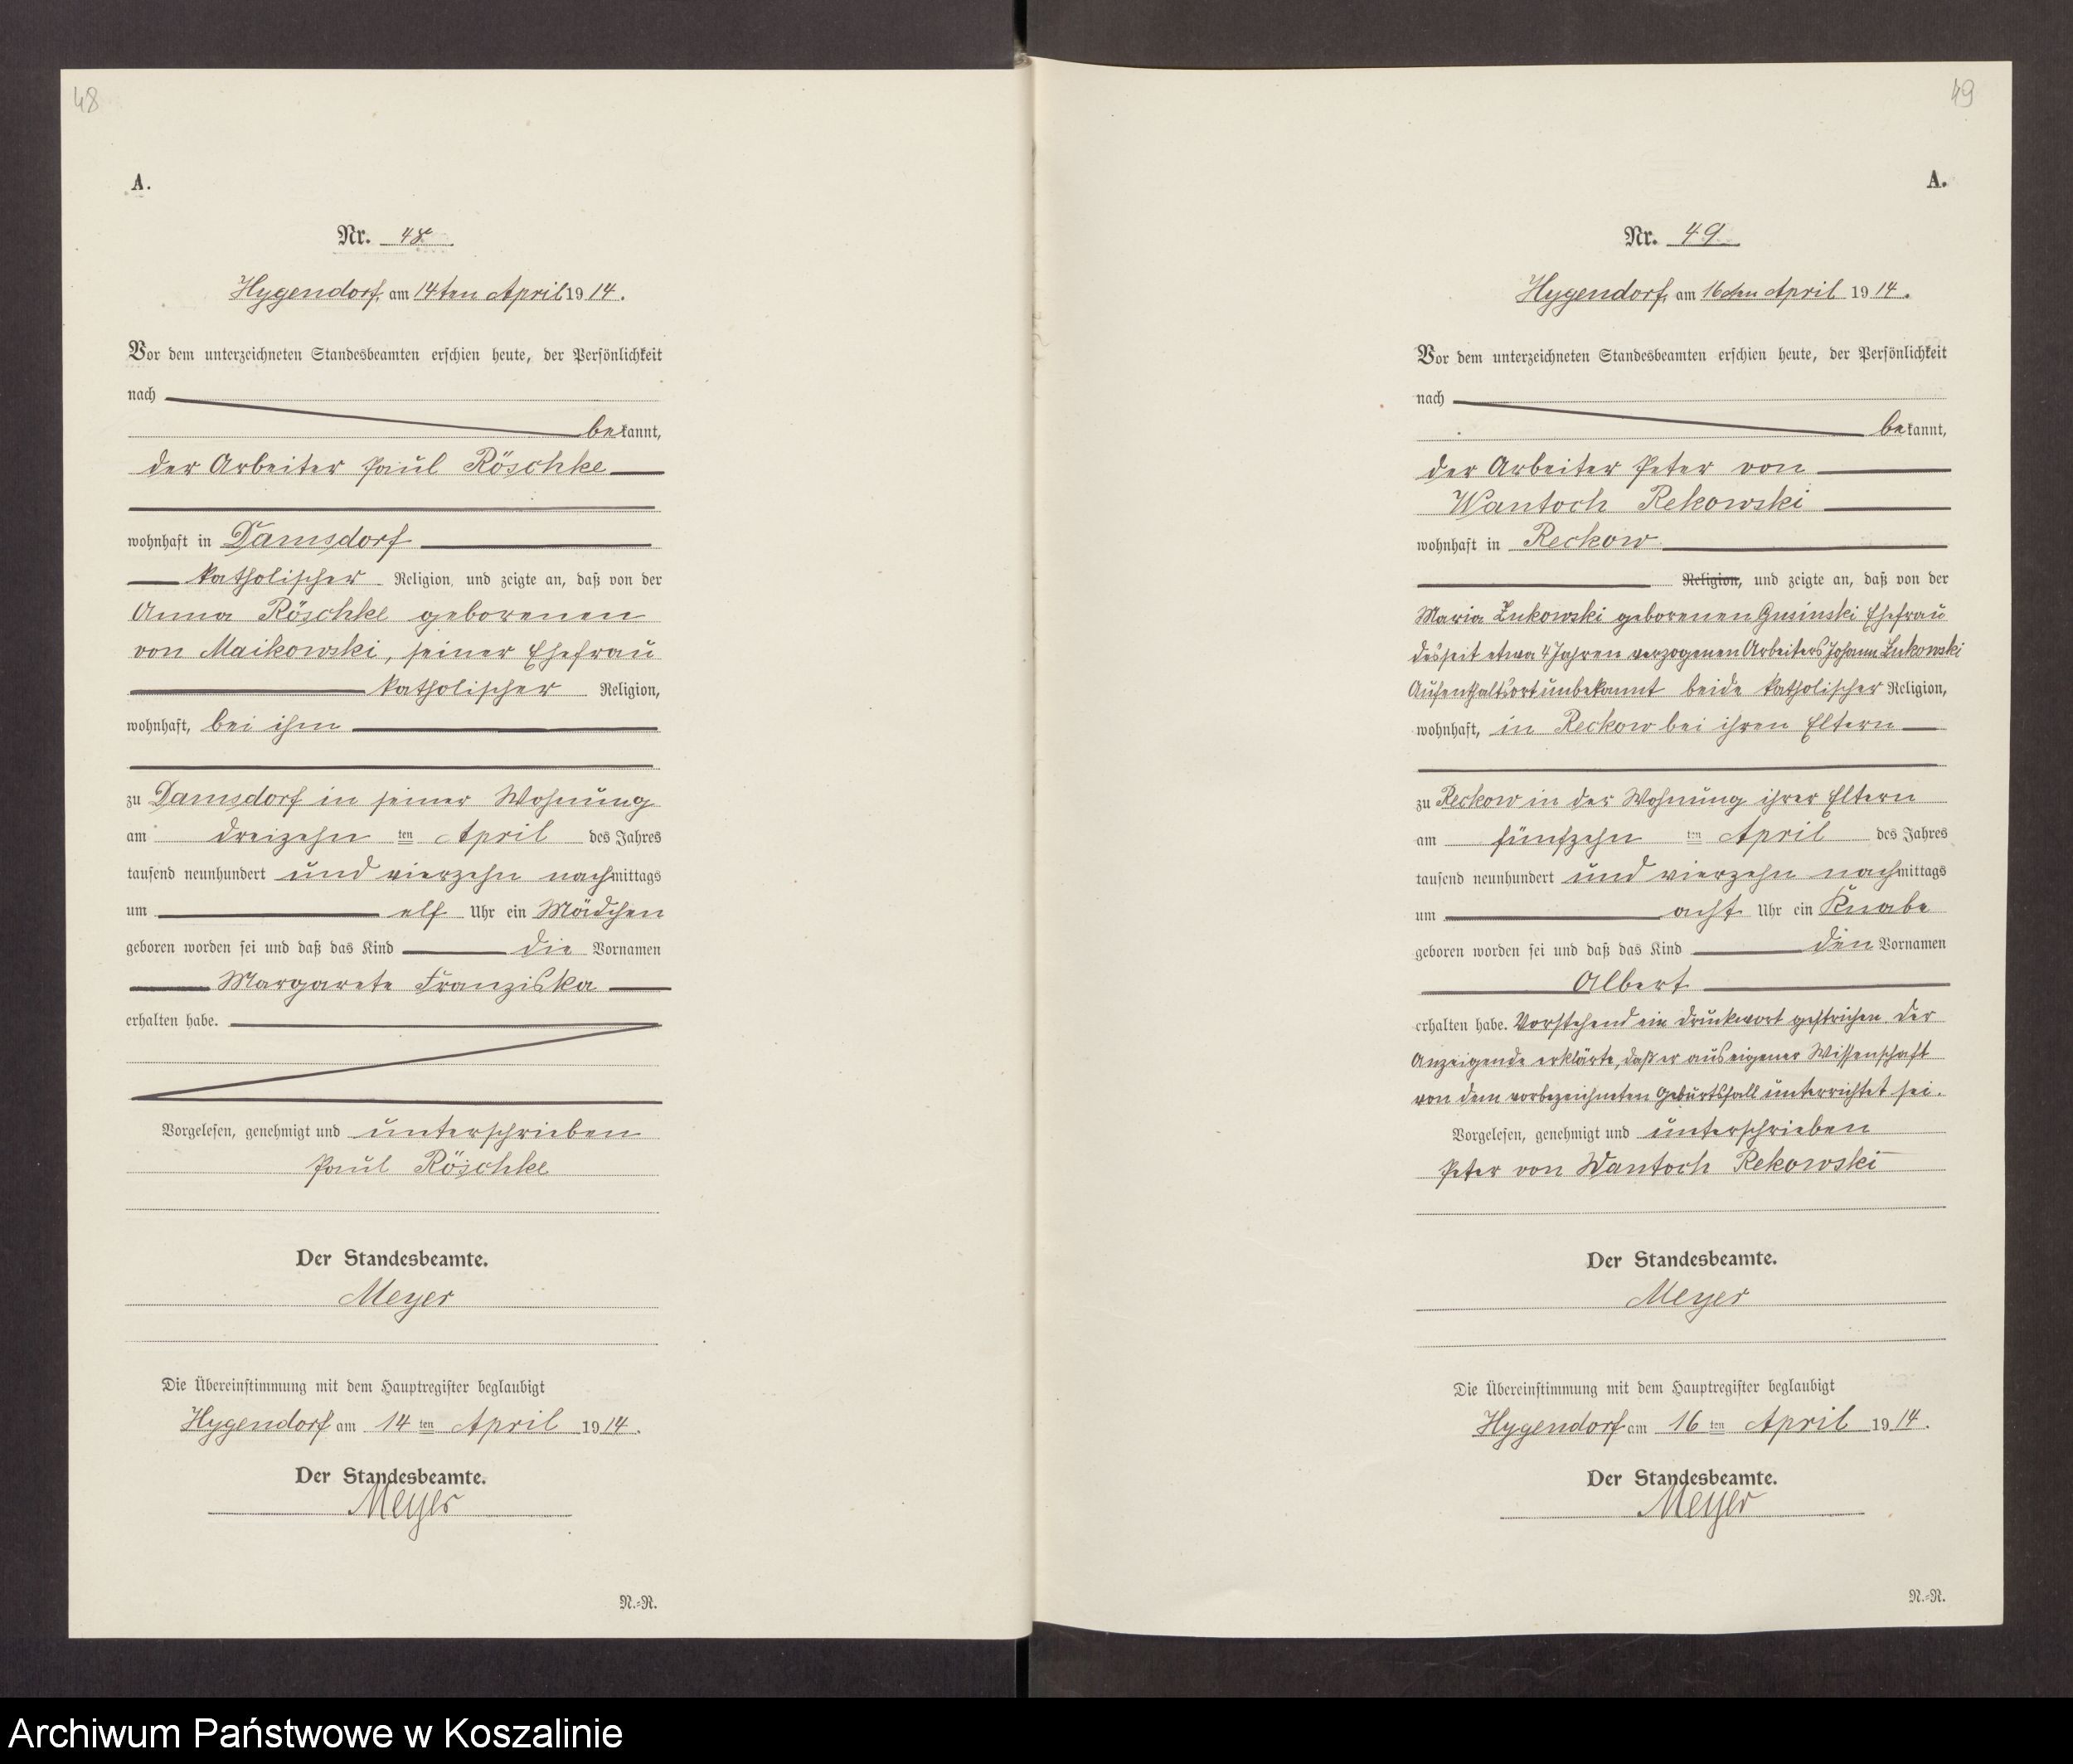 48
A.
Nr. 48
Hygendorf, am 14ten April 1914.
Vor dem unterzeichneten Standesbeamten erschien heute, der Persönlichkeit
nach
bekannt,
der Arbeiter Paul Röschke
wohnhaft in Damsdorf
katholischer Religion, und zeigte an, daß von der
Anna Röschke geborenen
von Maikowski, seiner Ehefrau
katholischer Religion,
wohnhaft, bei ihm
zu Damsdorf in seiner Wohnung
am dreizehn ten April des Jahres
tausend neunhundert und vierzehn nachmittags
um elf Uhr ein Mädchen
geboren worden sei und daß das Kind die Vornamen
Margarete Franziska
erhalten habe.
Vorgelesen, genehmigt und unterschrieben
Paul Röschke
Der Standesbeamte.
Meyer
Die Übereinstimmung mit dem Hauptregister beglaubigt
Hygendorf am 14 ten April 1914.
Der Standesbeamte.
Meyer
N.=R.
49
A.
Nr. 49
Hygendorf, am 16ten April 1914.
Vor dem unterzeichneten Standesbeamten erschien heute, der Persönlichkeit
nach
bekannt,
der Arbeiter Peter von
Wantoch Rekowski
wohnhaft in Reckow
Religion, und zeigte an, daß von der
Maria Lukowski geborenen Gusinski Ehefrau
des seit etwa 4 Jahren verzogenen Arbeiters Johann Lukowski
Aufenthaltsort unbekannt beide katholischer Religion,
wohnhaft, in Reckow bei ihren Eltern
zu Reckow in der Wohnung ihrer Eltern
am fünfzehn ten April des Jahres
tausend neunhundert und vierzehn nachmittags
um acht Uhr ein Knabe
geboren worden sei und daß das Kind den Vornamen
Albert
erhalten habe. Vorstehend ein Druckwort gestrichen. Der
Anzeigende erklärte, daß er aus eigener Wissenschaft
von dem vorbezeichneten Geburtsfall unterrichtet sei.
Vorgelesen, genehmigt und unterschrieben
Peter von Wantoch Rekowski
Der Standesbeamte.
Meyer
Die Übereinstimmung mit dem Hauptregister beglaubigt
Hygendorf am 16 ten April 1914.
Der Standesbeamte.
Meyer
N.=R.
Archiwum Państwowe w Koszalinie